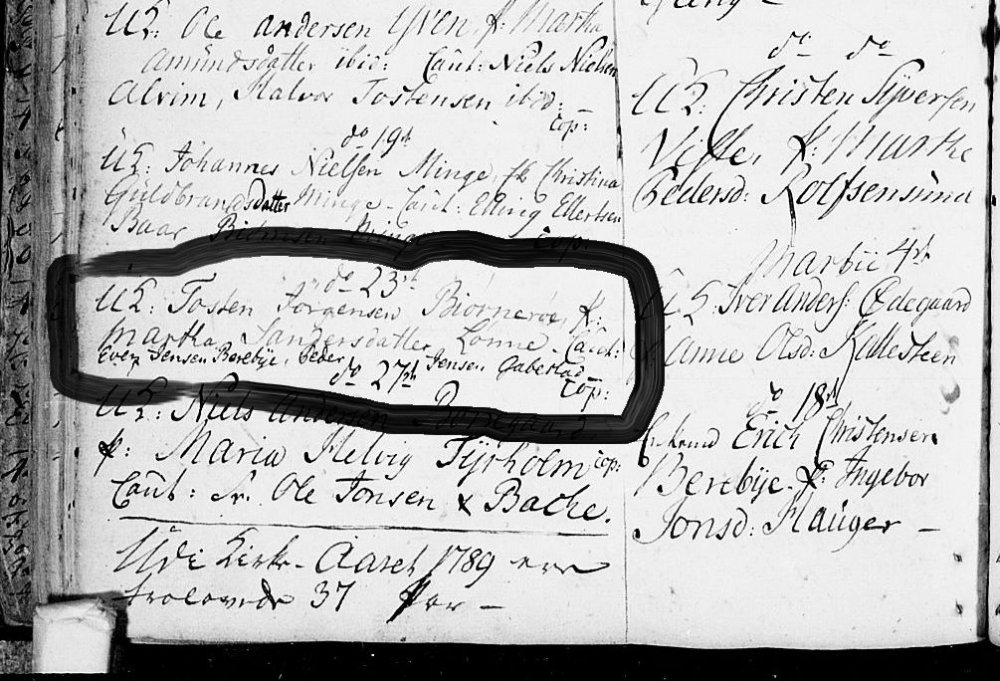 UK: Ole andersen Yven, p: Martha
amundsdatter ibid: Caut: Niels Nielsen
Alvim, Halvor Tostensen ibid: —
cop:
do 19de
UK: Johannes Nielsen Minge, pk Christina
Guldbrandsdatter Minge - Caut: Elling Ellertsen
Baar
cop:
do 23de
UK: Tosten Jørgensen Biørnerøe, p:
Martha Sandersdatter Lønne. Caut:
Even Jensen Berebye, Peder Jensen Gabestad
do 27de
cop:
UK: Niels Andersen
p: Maria Helvig Fyrholm cop:
Caut: Sr. Ole Jonsen & Bache.
Udi Kirke-Aaret 1789 ere
trolovede 37 Par —
do do
UK: Christen Syversen
Visle, p: Marthe
Pedersd: Rolfsensund
Martii 4de
Iver Anders: Ødegaard
Anne Olsd: Kallesteen
do 18de
Erich Christensen
Berebye. p: Ingebor
Jonsd: Hauger —